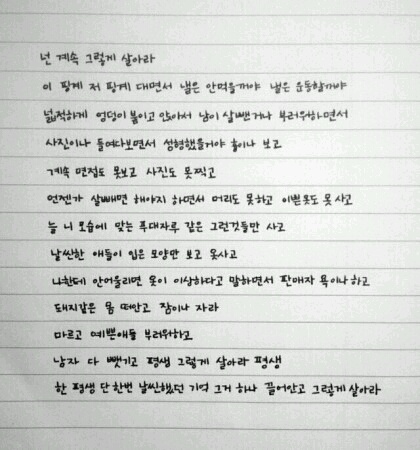 넌 계속 그렇게 살아라
이 핑계 저 핑계 대면서 낼은 안먹을꺼야 낼은 운동할꺼야
넓적하게 엉덩이 붙이고 앉아서 남이 살뺐거나 부러워하면서
사진이나 들여다보면서 성형했을거야 흠이나 보고
계속 면접도 못보고 사진도 못찍고
언젠가 살빼면 해야지 하면서 머리도 못하고 이쁜옷도 못사고
늘 니 모습에 맞는 푸대자루 같은 그런것들만 사고
날씬한 애들이 입은 모양만 보고 옷사고
니한테 안어울리면 옷이 이상하다고 말하면서 판매자 욕이나 하고
돼지같은 몸 떠안고 잠이나 자라
마르고 예쁜애들 부러워하고
남자 다 뺏기고 평생 그렇게 살아라 평생
한 평생 단 한번 날씬했던 기억 그거 하나 끌어안고 그렇게 살아라